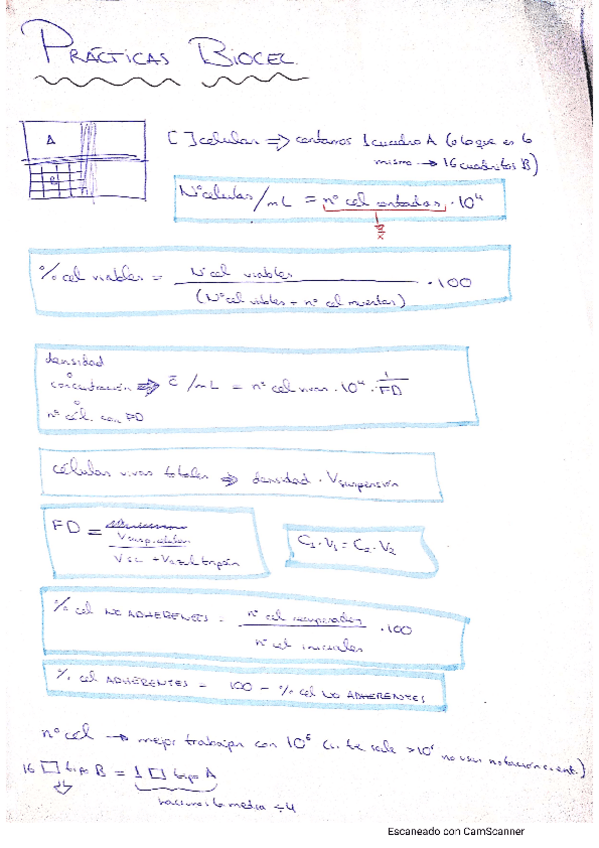 PRÁCTICAS BIOCEL.
[ ] celular ⇒ contamos 1 cuadro A (o lo que es lo
mismo → 16 cuadritos B)
A
Nº celulas/mL = nº cel contadas · 10⁴
x̄
% cel viables = Nº cel viables / (Nº cel viables + nº cel muertas) · 100
densidad
o
concentración ⇒ c̄/mL = nº cel vivas · 10⁴ · 1/FD
o
nº cél. con FD
células vivas totales ⇒ densidad · Vsuspensión
FD = Vsuspensión / Vsc + Vazul tripán
C₁ · V₁ = C₂ · V₂
% cel NO ADHERENTES = nº cel recuperadas / nº cel iniciales · 100
% cel ADHERENTES = 100 - % cel NO ADHERENTES
nº cel → mejor trabajar con 10⁶ (si te sale >10⁶ no usar notación cient.)
16 □ tipo B = 1 □ tipo A
hacemos la media ÷ 4
Escaneado con CamScanner